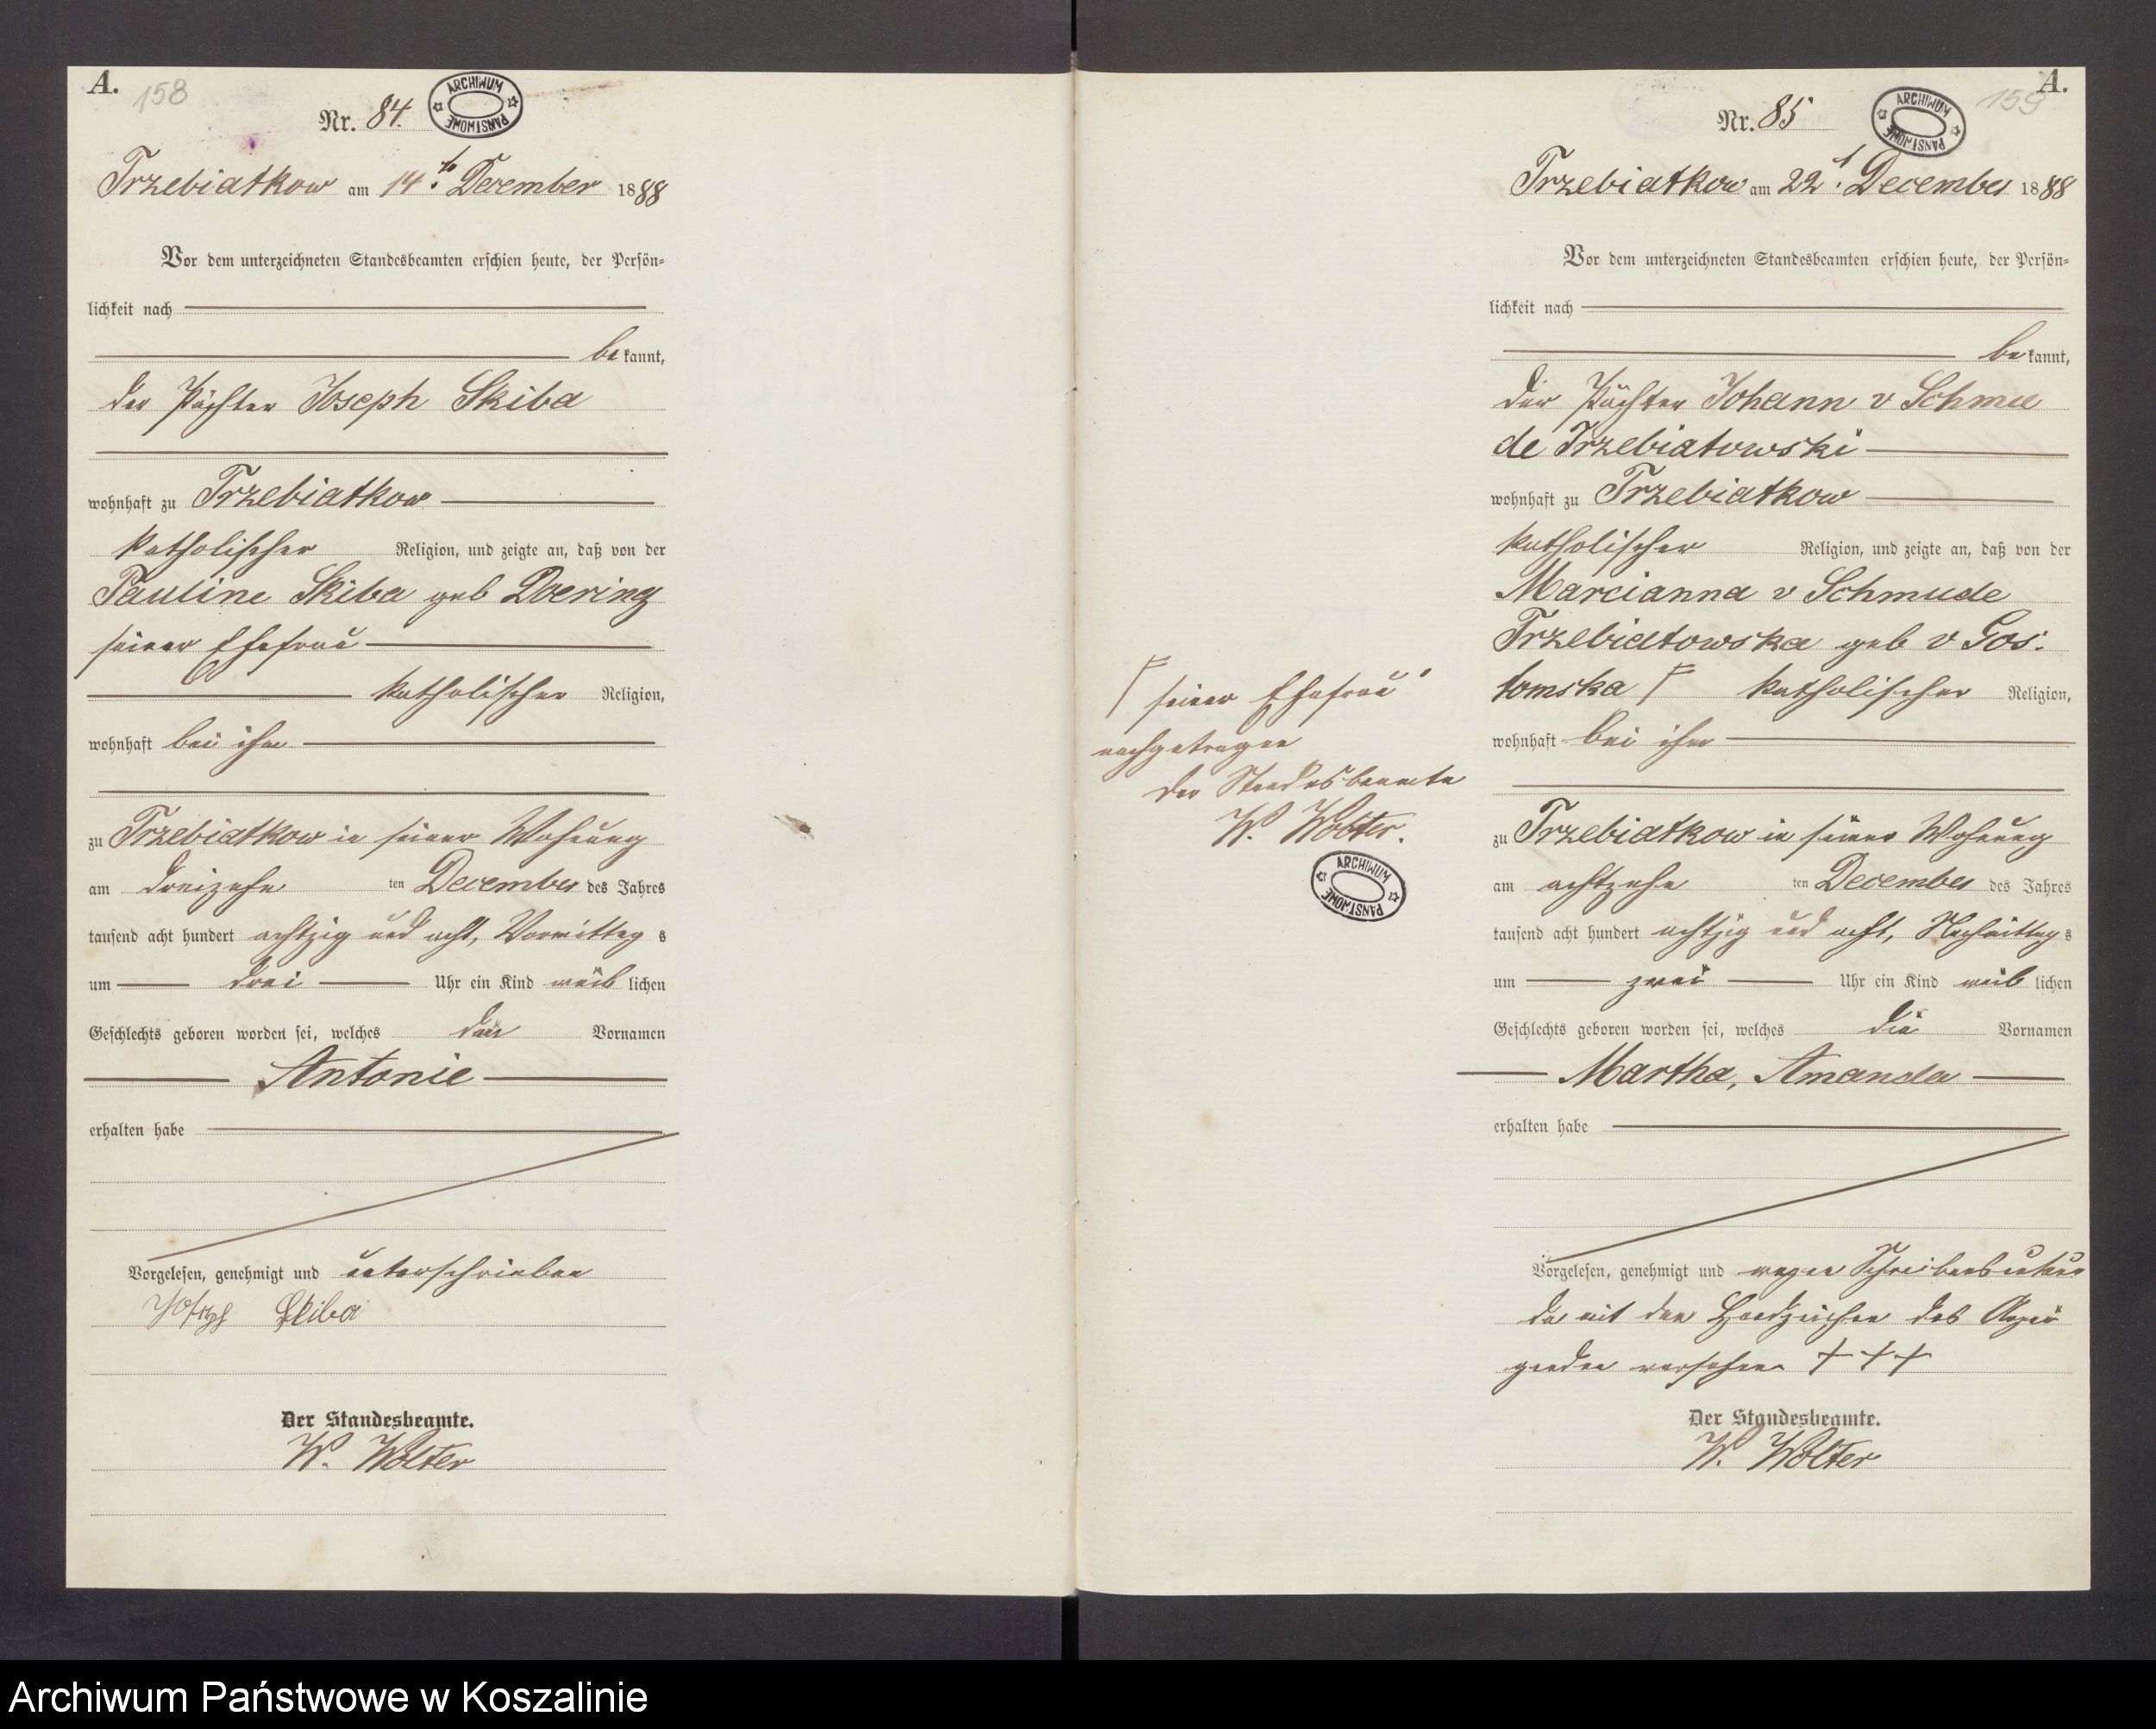 A.
158
ARCHIWUM PAŃSTWOWE
Nr. 84.
Trzebiatkow am 14ten December 1888
Vor dem unterzeichneten Standesbeamten erschien heute, der Persön-
lichkeit nach
bekannt,
der Pächter Joseph Skiba
wohnhaft zu Trzebiatkow
katholischer Religion, und zeigte an, daß von der
Pauline Skiba geb Doering
seiner Ehefrau
katholischer Religion,
wohnhaft bei ihm
zu Trzebiatkow in seiner Wohnung
am dreizehn ten December des Jahres
tausend acht hundert achtzig und acht, Vormittags
um drei Uhr ein Kind weiblichen
Geschlechts geboren worden sei, welches den Vornamen
Antonie
erhalten habe
Vorgelesen, genehmigt und unterschrieben
Joseph Skiba
Der Standesbeamte.
W. Wolter
A.
159
ARCHIWUM PAŃSTWOWE
Nr. 85
Trzebiatkow am 22t. December 1888
Vor dem unterzeichneten Standesbeamten erschien heute, der Persön-
lichkeit nach
bekannt,
der Pächter Johann v Schmu
de Trzebiatowski
wohnhaft zu Trzebiatkow
katholischer Religion, und zeigte an, daß von der
Marcianna v Schmude
Trzebiatowska geb v Gos-
tomska katholischer Religion,
wohnhaft bei ihm
zu Trzebiatkow in seiner Wohnung
am achtzehn ten December des Jahres
tausend acht hundert achtzig und acht, Nachmittags
um zwei Uhr ein Kind weiblichen
Geschlechts geboren worden sei, welches die Vornamen
Martha, Amanda
erhalten habe
Vorgelesen, genehmigt und wegen Schreibensunkun
de mit den Handzeichen des Anzei
genden versehen + + +
Der Standesbeamte.
W. Wolter
seiner Ehefrau
nachgetragen
Der Standesbeamte
W. Wolter.
ARCHIWUM PAŃSTWOWE
Archiwum Państwowe w Koszalinie